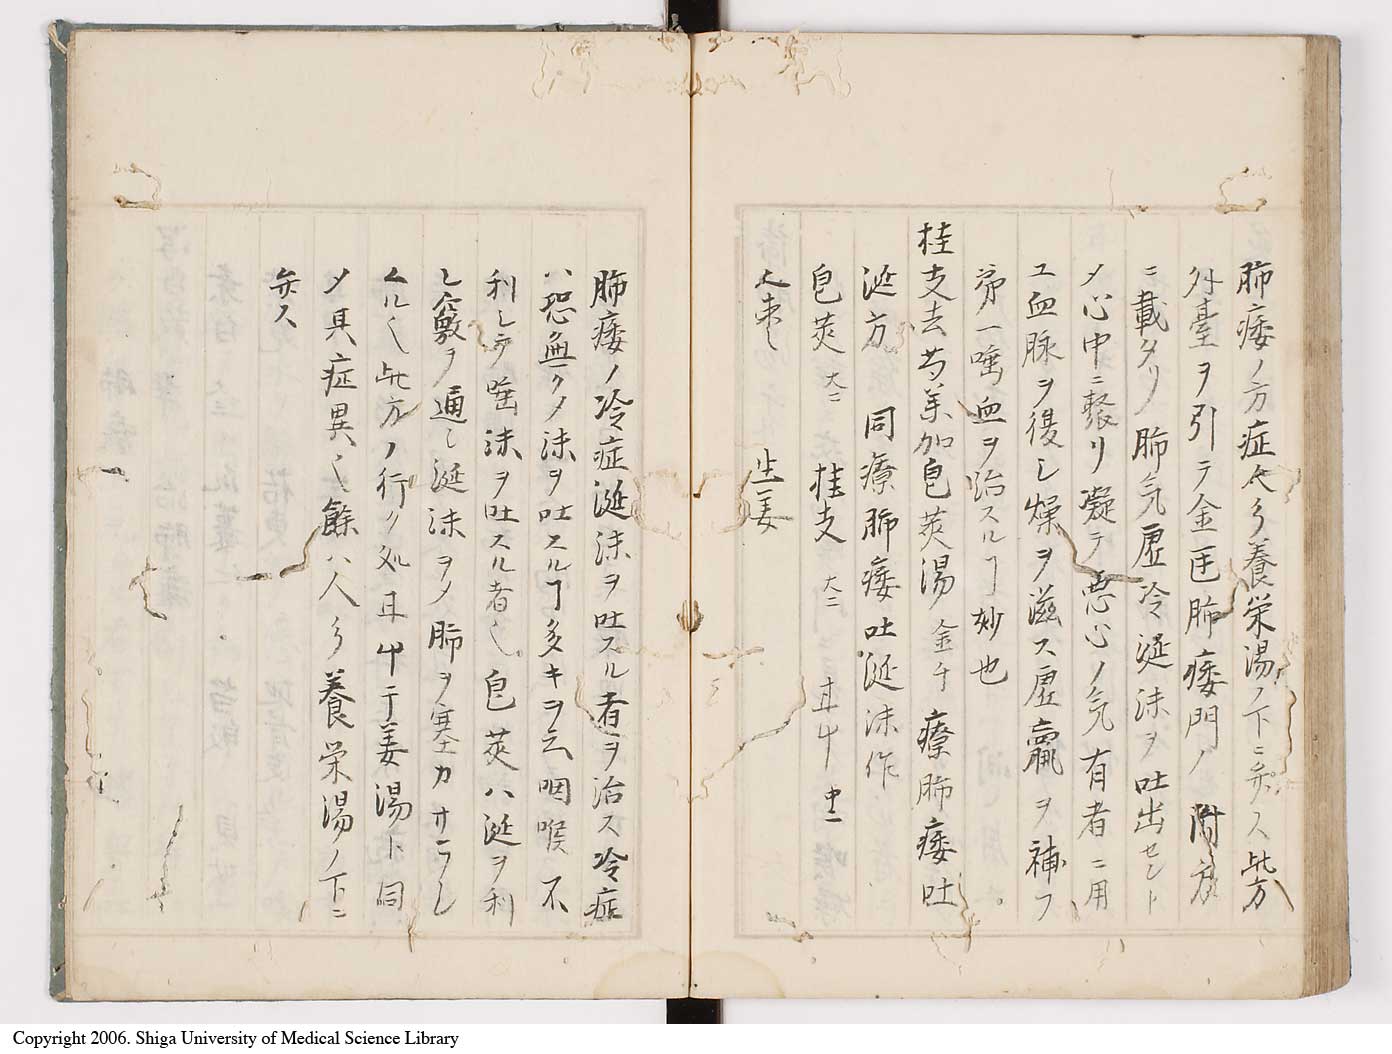 肺痿ノ方症大多養栄湯ノ下ニ弁ス此方
外臺ヲ引テ金匱肺痿門ノ附方
ニ載タリ肺気虚冷涎沫ヲ吐出セント
メ心中ニ聚リ凝テ悪心ノ気有者ニ用
ユ血脉ヲ復シ燥ヲ滋ス虚羸ヲ補フ
第一唾血ヲ治スルヿ妙也
桂支去芍薬加皂莢湯 金千 療肺痿吐
涎方 同療肺痿吐涎沫作
皂莢 大二 桂支 大一 甘草 中二
大棗 生姜
肺痿ノ冷症涎沫ヲ吐スル者ヲ治ス冷症
ハ恐無クメ沫ヲ吐スルヿ多キヲ云咽喉不
利シテ唾沫ヲ吐スル者也皂莢ハ涎ヲ利
シ竅ヲ通シ涎沫ヲメ肺ヲ塞カサラシ
ムル也此方ノ行ク処甘草干姜湯ト同
メ其症異也餘ハ人多養栄湯ノ下ニ
弁ス
Copyright 2006. Shiga University of Medical Science Library